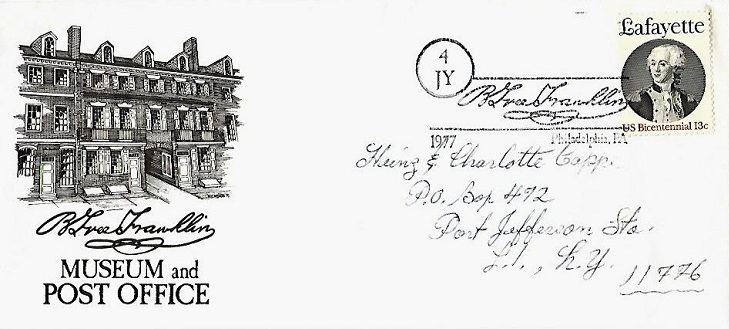 B Free Franklin
MUSEUM and
POST OFFICE
4
JY
B Free Franklin
1977
Philadelphia, PA
Lafayette
US Bicentennial 13c
Heinz & Charlotte
P.O. Box 472
Port Jefferson Sta.
L.I., N.Y. 11776